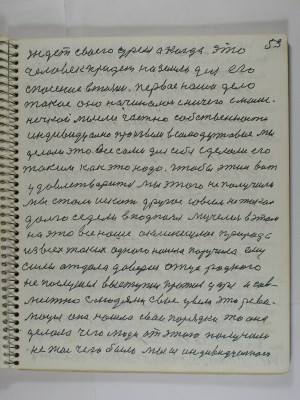 53
ждет своего время а когда это
человек придет на землю для его
спасения в жизни. первое наши дело
такое оно начиналось с ничего с малень
частно собственности
индивидуально мы
делали это все сами для себя сделали его
таким как это надо. чтобы этим вот
удовлетворится мы этого не получили
мы стали искать другое совсем не такое
долго сидели в подполе мучели в этом
на это все наше природа
из всех таких одного нашла поручила ему
силы отдала доверила отца родного
не послушал выступил против царя и сов-
местно с людями свое увели это рево-
люция она нашла свои порядки то она
делала чего люди от этого получили
не то чего было мы и индивидуального